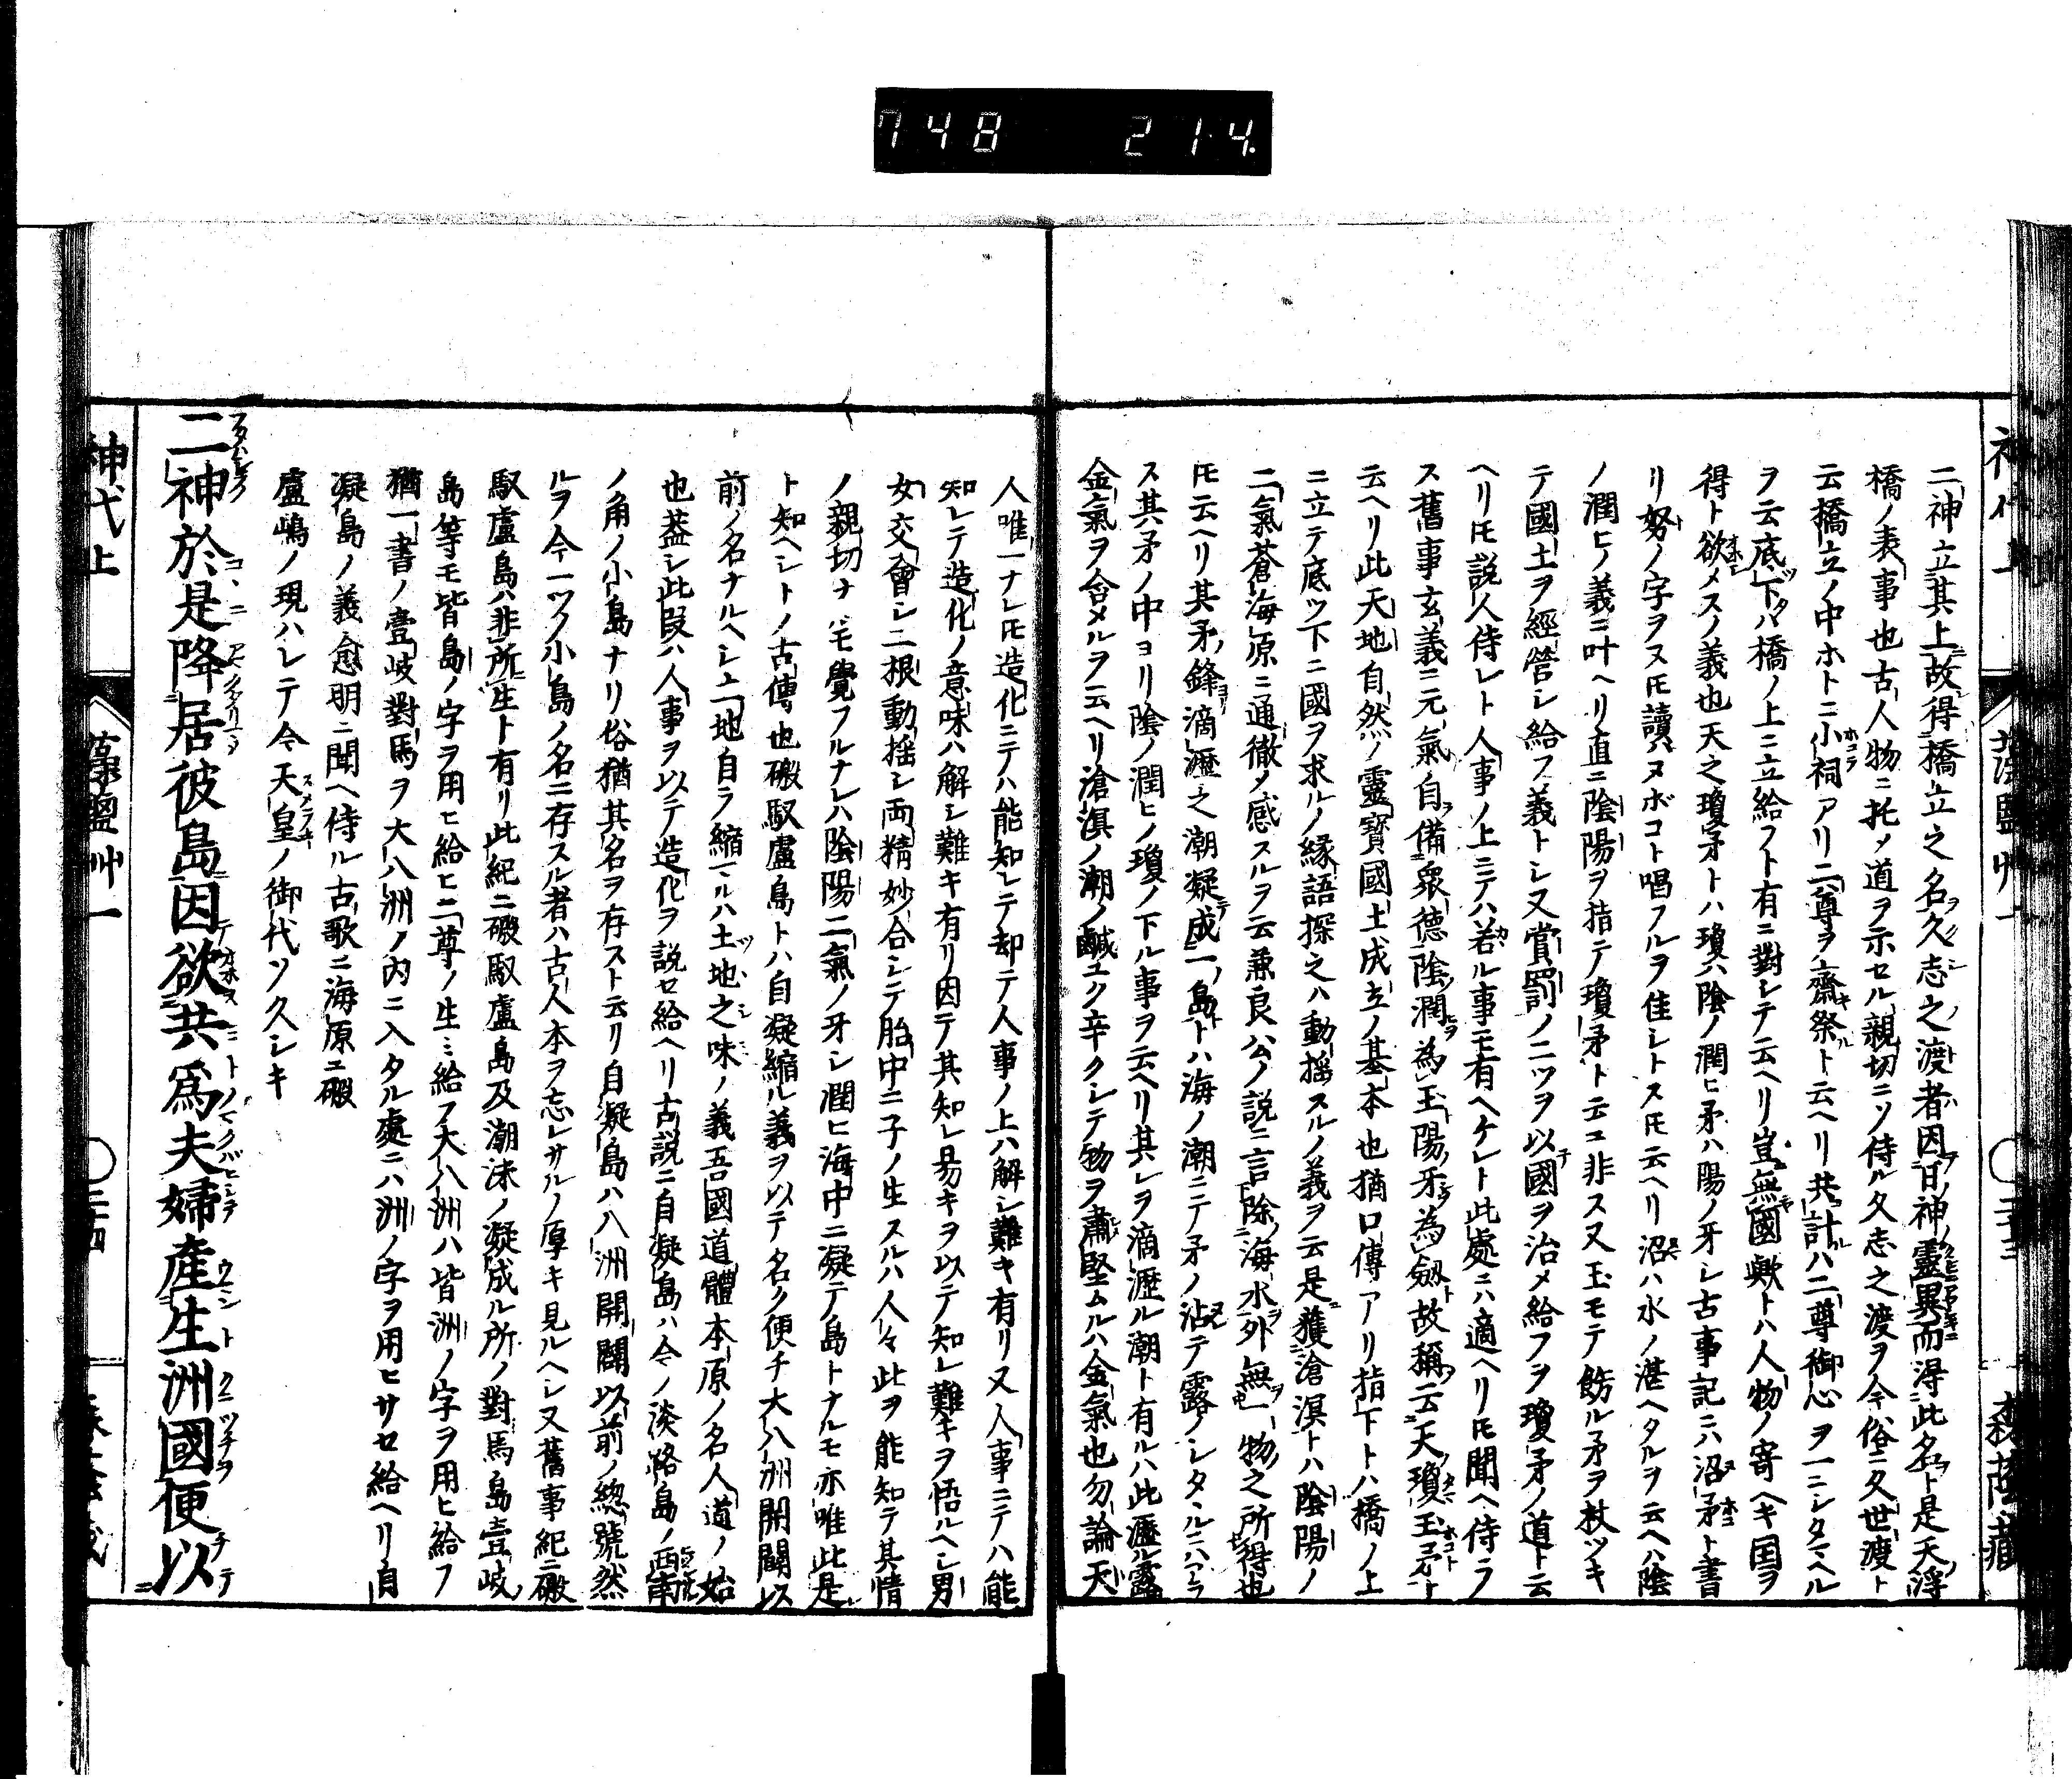 748 214.
二神立其上故得橋立之名久志之渡者因日神ノ靈異而得此名ト是天浮
橋ノ表事也古人物ニ托メ道ヲ示セル親切ニソ侍ル久志之渡ヲ今俗ニ久世渡ト
云橋立ノ中ホトニ小祠アリ二尊ヲ齋祭ト云ヘリ共計ハ二尊御心ヲ一ニシタマヘル
ヲ云底下ハ橋ノ上ニ立給フト有ニ對シテ云ヘリ豈無國歟トハ人物ノ寄ヘキ国ヲ
得ト欲メスノ義也天之瓊矛トハ瓊ハ陰ノ潤ヒ矛ハ陽ノ牙シ古事記ニハ沼矛ト書
リ努ノ字ヲヌ圧讀ハヌボコト唱フルヲ佳シトス圧云ヘリ沼ハ水ノ湛ヘタルヲ云ヘハ陰
ノ潤ヒノ義ニ叶ヘリ直ニ陰陽ヲ指テ瓊矛ト云ニ非ス又玉モテ餝ル矛ヲ杖ツキ
テ國土ヲ經營シ給フ義トシ又賞罰ノ二ツヲ以國ヲ治メ給フヲ瓊矛ノ道ト云
ヘリ圧説人侍レト人事ノ上ニテハ若ル事モ有ヘケレト此處ニハ適ヘリ圧聞ヘ侍ラ
ス舊事玄義ニ元氣自備衆德陰潤為玉陽牙為劔故稱云天瓊玉矛ト
云ヘリ此天地自然ノ靈寳國土成立ノ基本也猶口傳アリ指下トハ橋ノ上
ニ立テ底ツ下ニ國ヲ求ルノ縁語探之ハ動揺スルノ義ヲ云是獲滄溟トハ陰陽ノ
二氣蒼海原ニ通徹ノ感スルヲ云兼良公ノ説ニ言除海水外無一物之所得也
圧云ヘリ其矛鋒滴瀝之潮凝成一島トハ海ノ潮ニテ矛ノ沾テ露ノシタタルニハアラ
ス其矛ノ中ヨリ陰ノ潤ヒノ瓊ノ下ル事ヲ云ヘリ其レヲ滴瀝ル潮ト有ルハ此瀝ル露
金氣ヲ含メルヲ云ヘリ滄溟ノ潮ノ鹹ユク辛クシテ物ヲ肅堅ムルハ金氣也勿論天
人唯一ナレ圧造化ニテハ能知レテ却テ人事ノ上ハ解シ難キ有リ又人事ニテハ能
知レテ造化ノ意味ハ解シ難キ有リ因テ其知レ易キヲ以テ知レ難キヲ悟ルヘシ男
女交會シ二根動揺シ両精妙合シテ胎中ニ子ノ生スルハ人々此ヲ能知テ其情
ノ親切ナハモ覺フルナレハ陰陽二氣ノ牙シ潤ヒ海中ニ凝テ島トナルモ亦唯此是
ト知ヘシトノ古傳也磤馭盧島トハ自凝縮ル義ヲ以テ名ク便チ大八洲開闢以
前ノ名ナルヘシ上地自ラ縮マルハ土地之味ノ義吾國道體本原ノ名人道ノ始
也葢シ此段ハ人事ヲ以テ造化ヲ説セ給ヘリ古説ニ自凝島ハ今ノ淡路島ノ西南
ノ角ノ小島ナリ俗猶其名ヲ存スト云リ自凝島ハ八洲開闢以前ノ總號然
ルヲ今一ツノ小島ノ名ニ存スル者ハ古人本ヲ忘レサルノ厚キ見ルヘシ又舊事紀ニ磤
馭盧島ハ非所生ト有リ此紀ニ磤馭盧島及潮沫ノ凝成ル所ノ對馬島壹岐
島等モ皆島ノ字ヲ用ヒ給ヒ二尊ノ生ミ給フ大八洲ハ皆洲ノ字ヲ用ヒ給フ
猶一書ノ壹岐對馬ヲ大八洲ノ内ニ入タル處ニハ洲ノ字ヲ用ヒサセ給ヘリ自
凝島ノ義愈明ニ聞ヘ侍ル古歌ニ海原ユ磤
盧嶋ノ現ハレテ今天皇ノ御代ソ久シキ
二神於是降居彼島因欲共爲夫婦產生洲國便以
神代上 藻鹽艸一